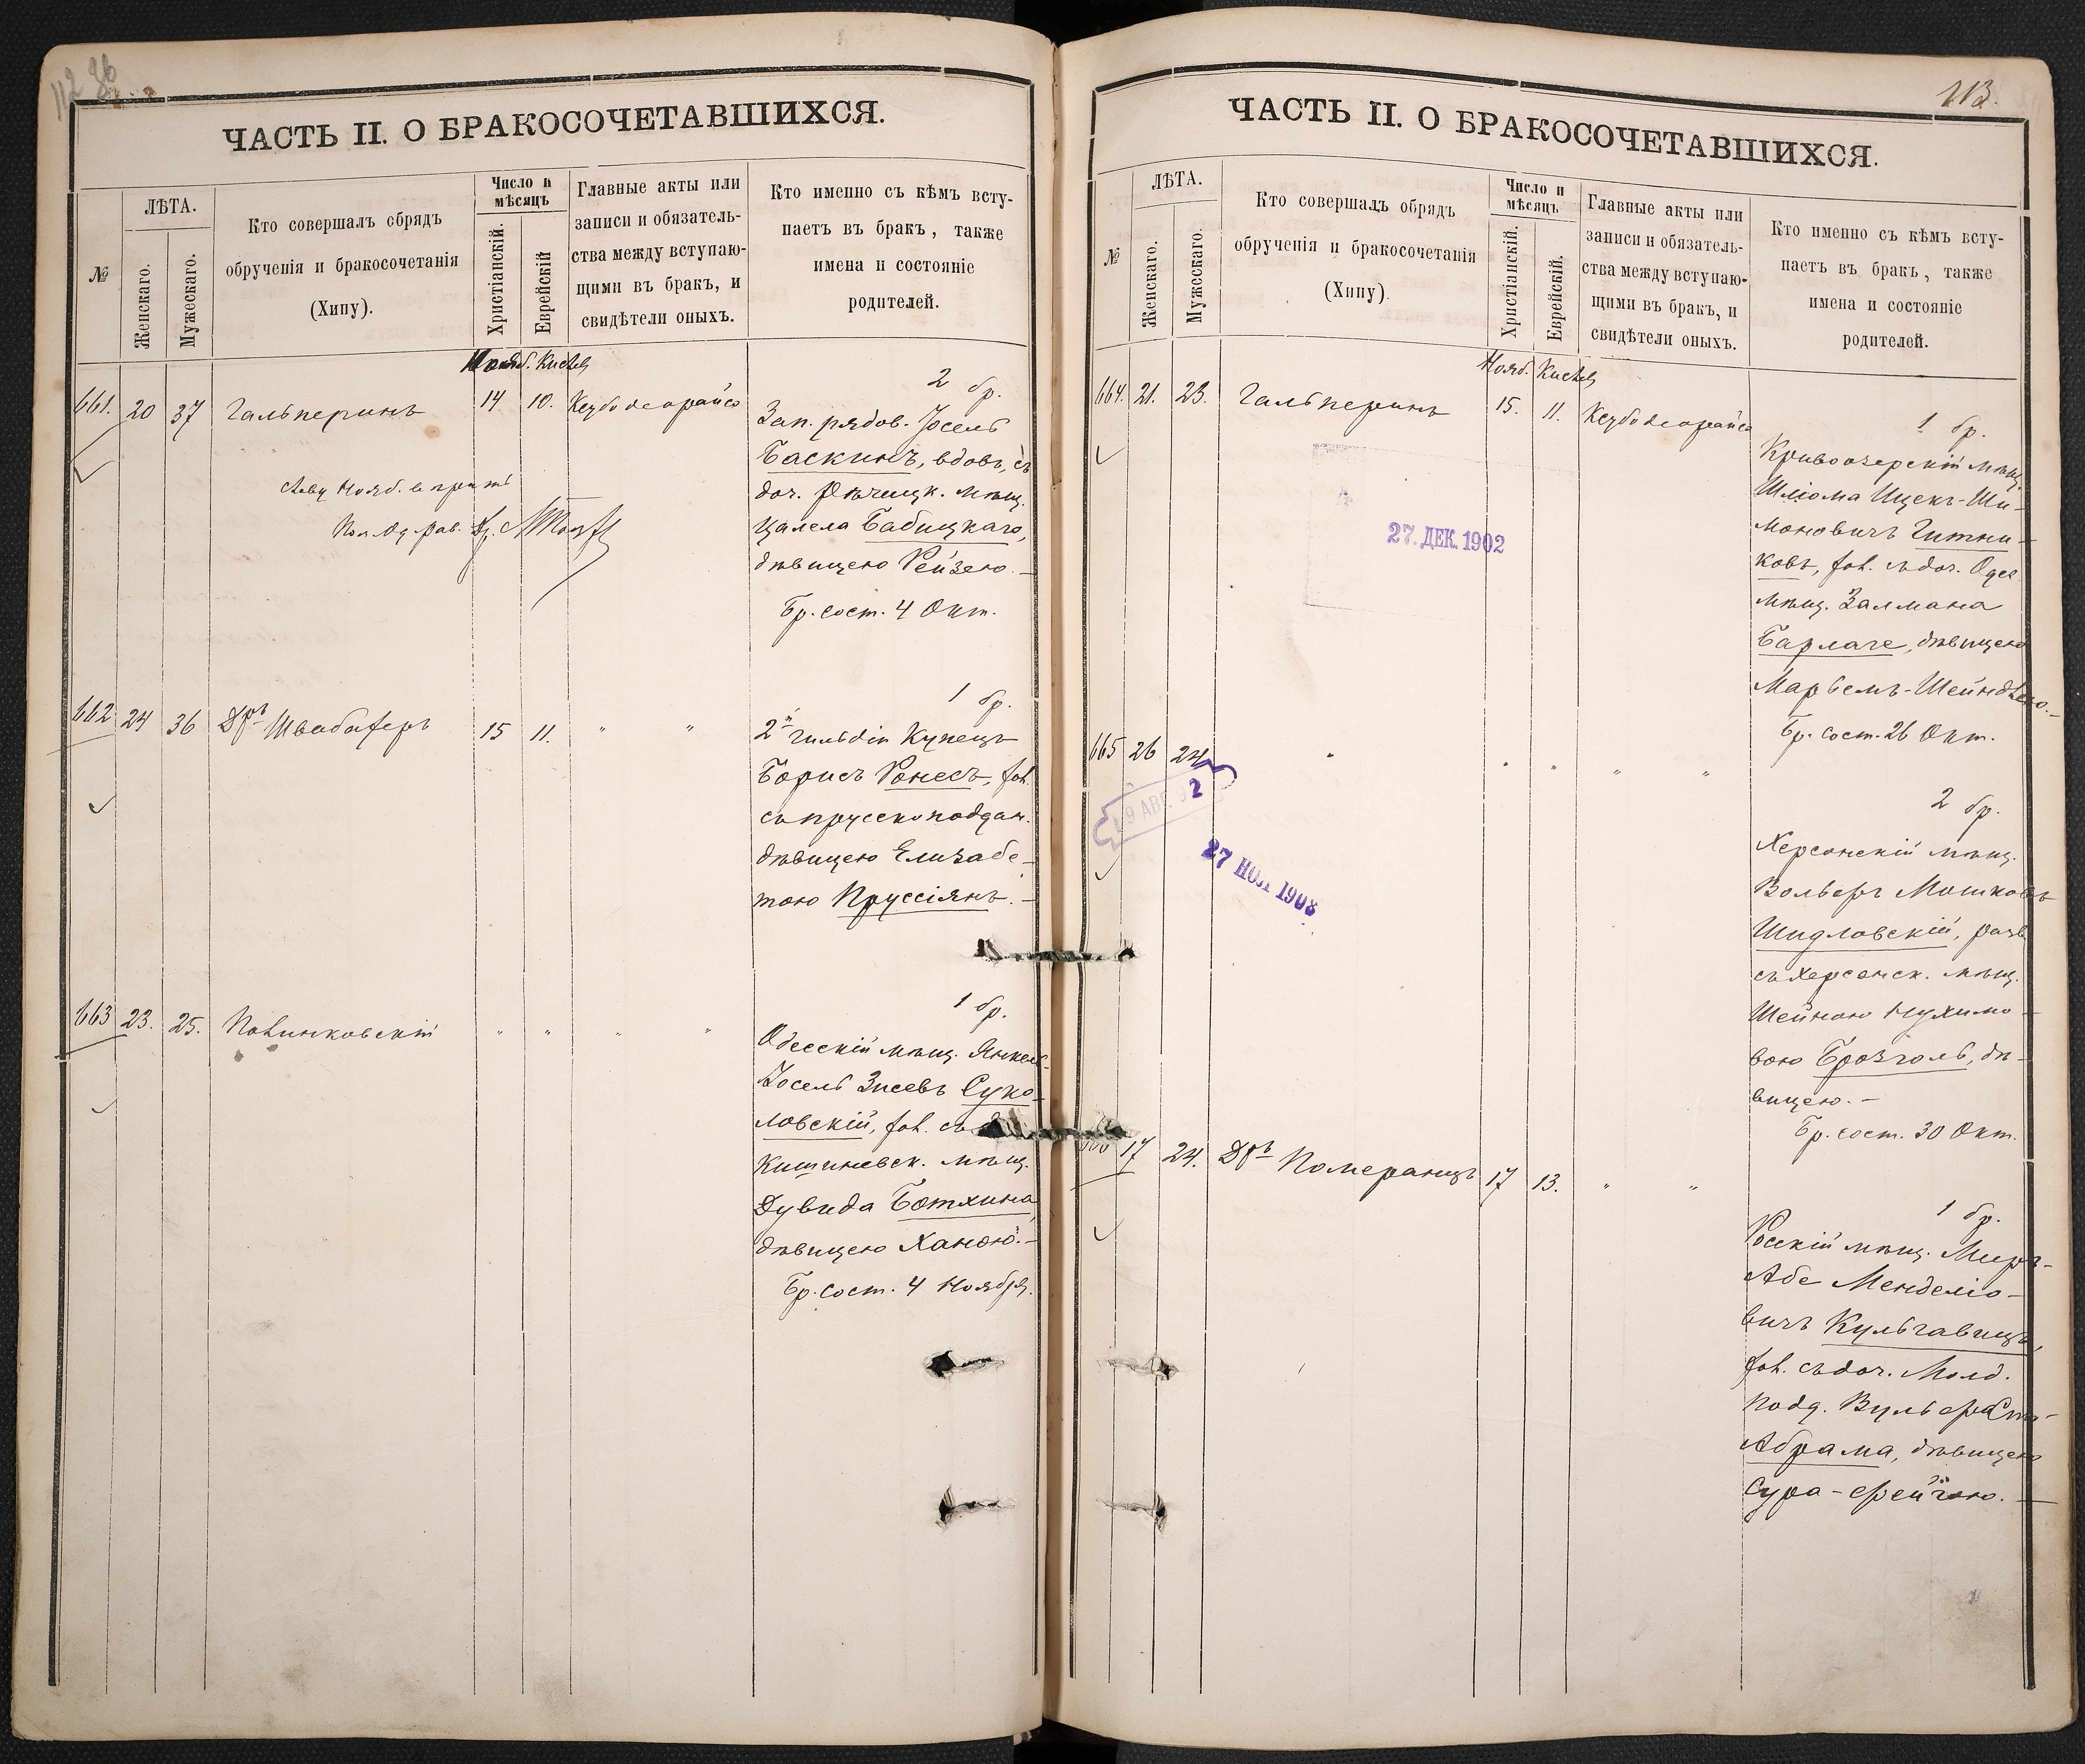 112 96
ЧАСТЬ II. О БРАКОСОЧЕТАВШИХСЯ.
№
ЛѢТА.
Женскаго.
Мужескаго.
Кто совершалъ обрядъ
обрученія и бракосочетанія
(Хипу).
Число и
мѣсяцъ
Христіанскій.
Еврейскій
Главные акты или
записи и обязатель-
ства между вступаю-
щими въ бракъ, и
свидѣтели оныхъ.
Кто именно съ кѣмъ всту-
паетъ въ бракъ, также
имена и состояніе
родителей.
Нояб. Кислев
661. 20 37 Гальперинъ 14 10. Кезубо деорайсо
2 бр.
Зап. рядов. Іосель
Баскинъ, вдовъ, съ
доч. Рѣчицк. мѣщ.
Цалела Бабицкаго,
дѣвицею Рейзею. –
Бр. сост. 4 Окт.
662 24 36 Дръ Швабахеръ 15 11. " "
1 бр.
2й гильдіи Купецъ
Борисъ Ронесъ, хол.
съ прусско поддан.
дѣвицею Елизабе-
тою Пруссіянъ. –
663 23. 25. Повинковскій " " " "
1 бр.
Одесскій мѣщ. Янкель-
Іосель Зисевъ Суко-
ловскій, хол. съ
Кишиневск. мѣщ.
Дувида Ботхина,
дѣвицею Ханою. –
Бр. сост. 4 Ноября.
113.
ЧАСТЬ II. О БРАКОСОЧЕТАВШИХСЯ.
№
ЛѢТА.
Женскаго.
Мужескаго.
Кто совершалъ обрядъ
обрученія и бракосочетанія
(Хипу).
Число и
мѣсяцъ
Христіанскій.
Еврейскій.
Главные акты или
записи и обязатель-
ства между вступаю-
щими въ бракъ, и
свидѣтели оныхъ.
Кто именно съ кѣмъ всту-
паетъ въ бракъ, также
имена и состояніе
родителей.
Нояб. Кислев
664. 21. 23. Гальперинъ 15. 11. Кезубо деорайсо
1 бр.
Кривоозерскій мѣщ.
Шліома Ицекъ-Ши-
моновичъ Гитни-
ковъ, хол. съ доч. Одес.
мѣщ. Залмана
Барлаге, дѣвицею
Марьемъ-Шейндлею. –
Бр. сост. 26 Окт.
27. ДЕК. 1902
665 26 24 " " " " "
2 бр.
Херсонскій мѣщ.
Вольфъ Мошковъ
Шидловскій, разв.
съ херсонск. мѣщ.
Шейною Нухимо-
вою Брозголь, дѣ-
вицею. –
Бр. сост. 30 Окт.
27 НОЯ 1903
17 24. Дръ Померанцъ 17 13. " "
1 бр.
Росскій мѣщ. Меиръ-
Абе Менделіо-
вичъ Кульгавицъ,
хол. съ доч. Молд.
подд. Вульфа Сто-
Абрама, дѣвицею
Сура-Фейгою. –